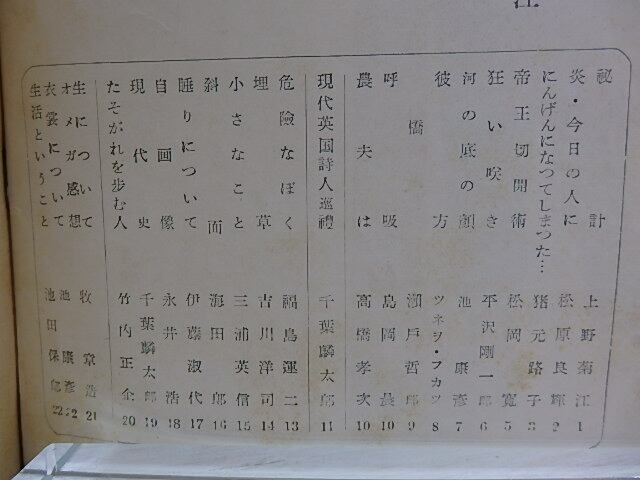 秘計 上野菊江 1
炎・今日の人に 松原良輝 2
にんげんになつてしまつた… 猪元路子 3
帝王切開術 松岡寛 5
狂い咲き 平沢剛一郎 6
河の底の顔 池康彦 7
彼方 ツネヲ・フカツ 8
橋 瀬戸哲郎 9
呼吸 島岡長 10
農夫は 高橋孝次 10
現代英国詩人巡禮 千葉麟太郎 11
危險なぼく 福島運二 13
埋草 吉川洋司 14
小さなこと 三浦英信 15
斜面 海田郎 16
睡りについて 伊藤淑代 17
自画像 永井浩 18
現代史 千葉麟太郎 19
たそがれを歩む人 竹内正企 20
生について 牧章造 21
オメガ感想 池康彦 22
衣裳について
生活ということ 池田保郎 22